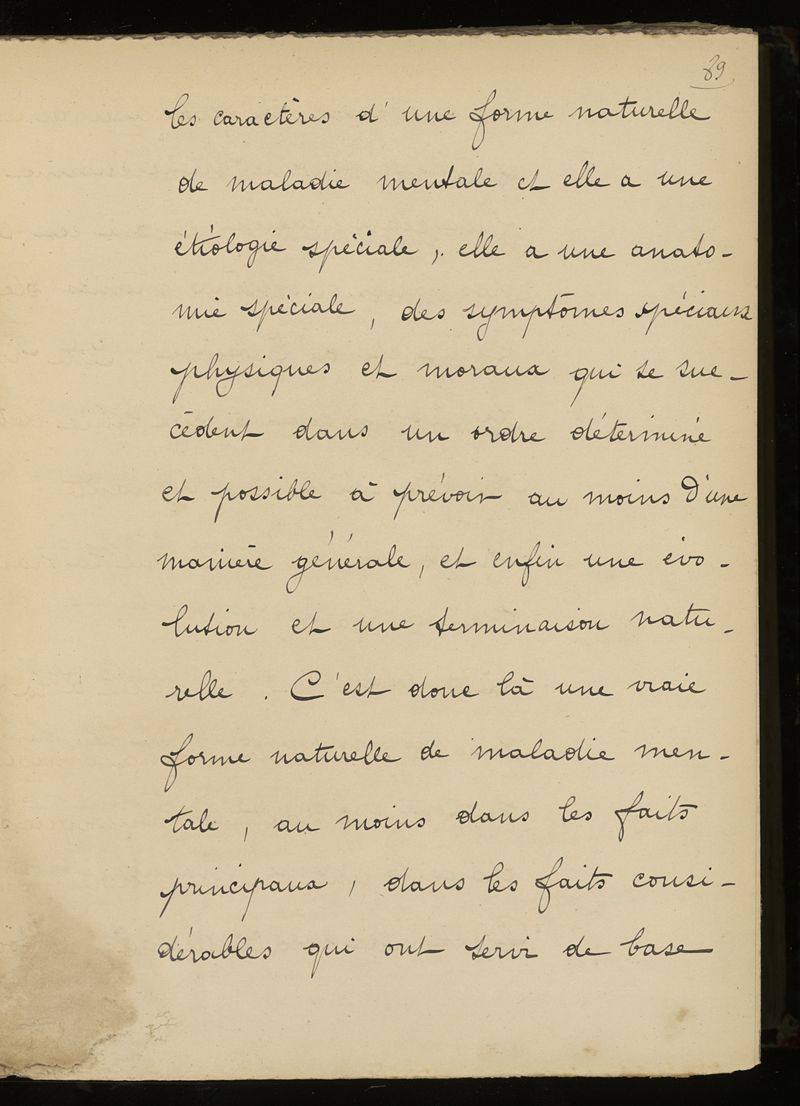 89
les caractères d'une forme naturelle
de maladie mentale et elle a une
étiologie spéciale, elle a une anato-
mie spéciale, des symptômes spéciaux
physiques et moraux qui se suc-
cèdent dans un ordre déterminé
et possible à prévoir au moins d'une
manière générale, et enfin une évo-
lution et une terminaison natu-
relle. C'est donc là une vraie
forme naturelle de maladie men-
tale, au moins dans les faits
principaux, dans les faits consi-
dérables qui ont servi de base